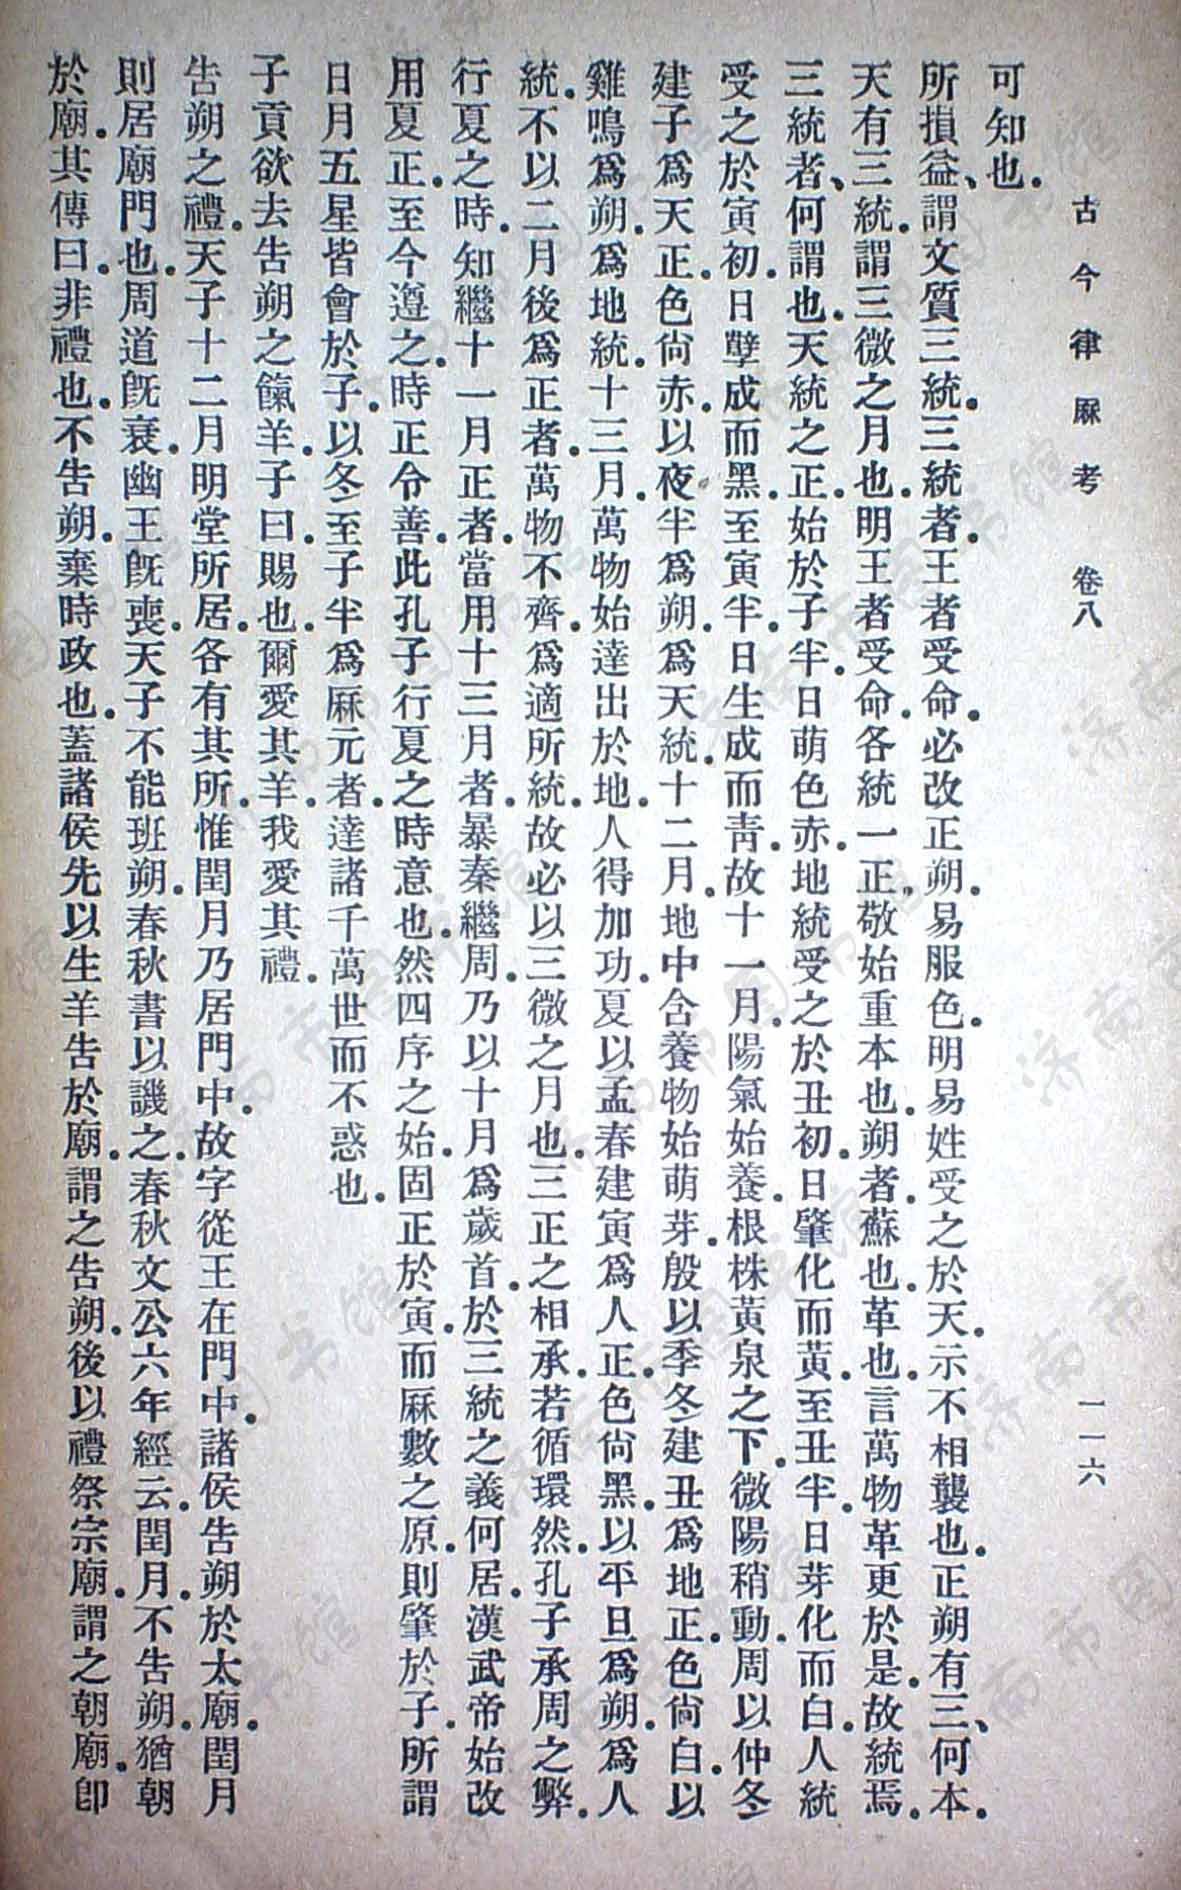 古今律厤考 卷八 一一六
可知也.
所損益、謂文質三統.三統者.王者受命.必改正朔.易服色.明易姓受之於天.示不相襲也.正朔有三、何本.
天有三統.謂三微之月也.明王者受命.各統一正.敬始重本也.朔者.蘇也.革也.言萬物革更於是.故統焉.
三統者、何謂也.天統之正.始於子半.日萌色赤.地統受之於丑初.日肇化而黃.至丑半.日芽化而白.人統
受之於寅初.日孽成而黑.至寅半.日生成而青.故十一月.陽氣始養.根株黃泉之下.微陽稍動.周以仲冬
建子爲天正.色尙赤.以夜半爲朔.爲天統.十二月.地中含養物始萌芽.殷以季冬建丑爲地正.色尙白.以
雞鳴爲朔.爲地統.十三月.萬物始達出於地.人得加功.夏以孟春建寅爲人正.色尙黑.以平旦爲朔.爲人
統.不以二月後爲正者.萬物不齊.爲適所統.故必以三微之月也.三正之相承.若循環然.孔子承周之弊.
行夏之時.知繼十一月正者.當用十三月者.暴秦繼周.乃以十月爲歲首.於三統之義何居.漢武帝始改
用夏正.至今遵之.時正令善.此孔子行夏之時意也.然四序之始.固正於寅.而厤數之原.則肇於子.所謂
日月五星皆會於子.以冬至子半爲厤元者.達諸千萬世而不惑也.
子貢欲去告朔之餼羊.子曰.賜也.爾愛其羊.我愛其禮.
告朔之禮.天子十二月明堂所居.各有其所.惟閏月乃居門中.故字從王在門中.諸侯告朔於太廟.閏月
則居廟門也.周道旣衰.幽王旣喪.天子不能班朔.春秋書以譏之.春秋文公六年經云.閏月.不告朔.猶朝
於廟.其傳曰.非禮也.不告朔.棄時政也.蓋諸侯先以生羊告於廟.謂之告朔.後以禮祭宗廟.謂之朝廟.卽